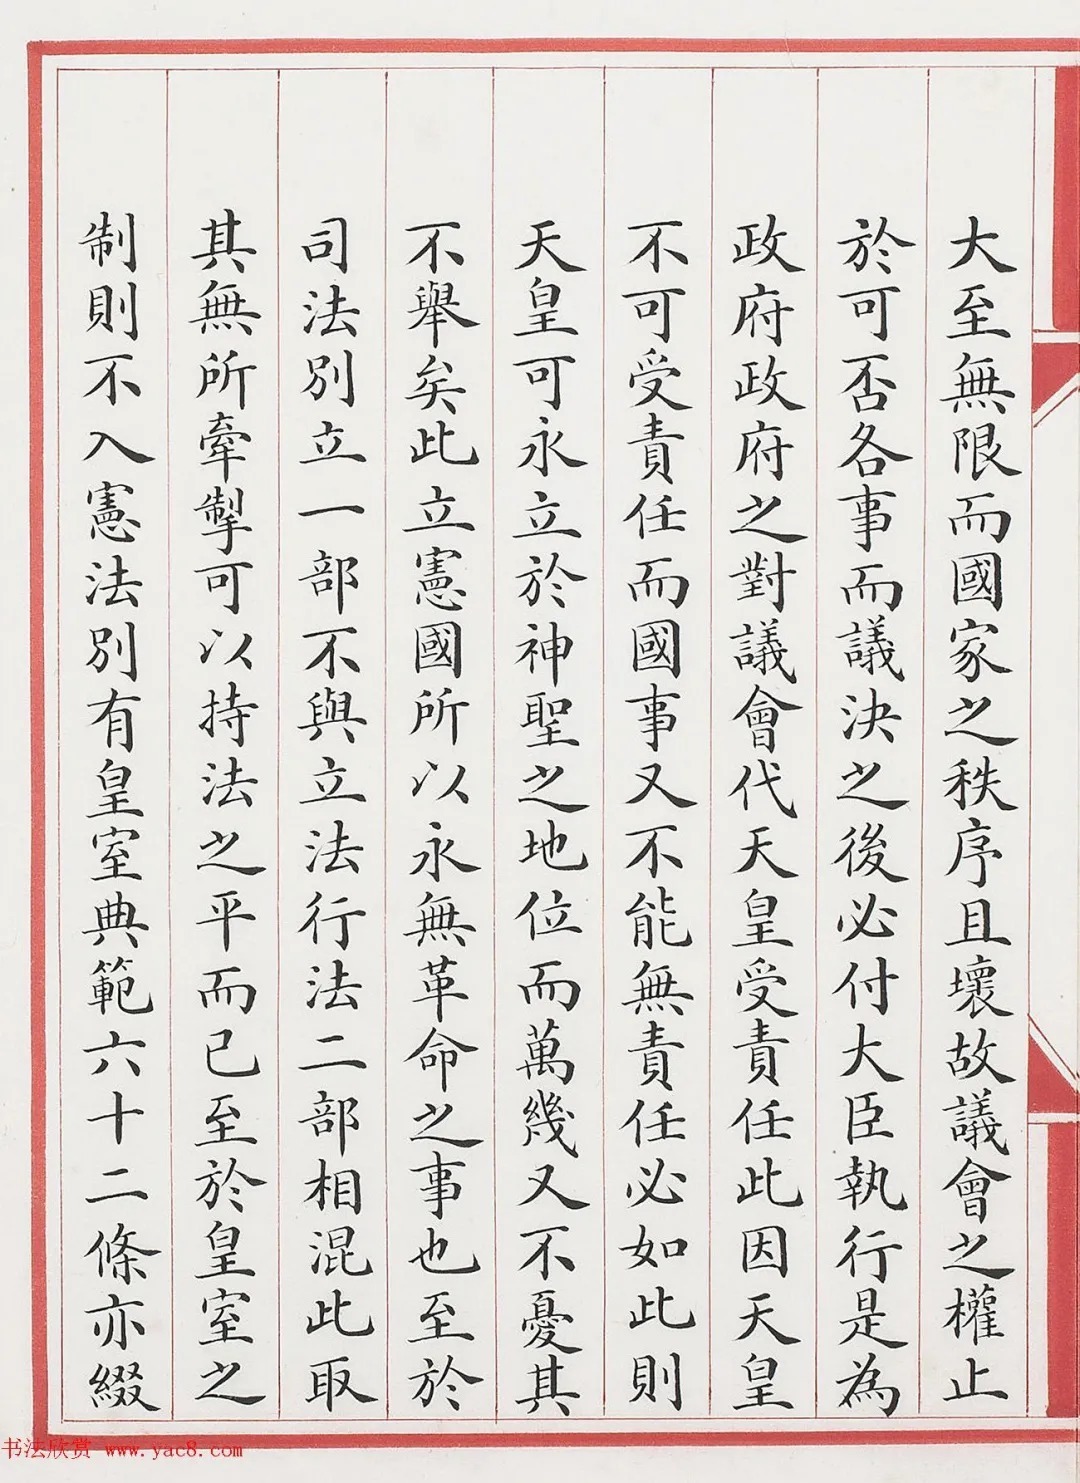 大至無限而國家之秩序且壞故議會之權止
於可否各事而議決之後必付大臣執行是為
政府政府之對議會代天皇受責任此因天皇
不可受責任而國事又不能無責任必如此則
天皇可永立於神聖之地位而萬幾又不憂其
不舉矣此立憲國所以永無革命之事也至於
司法別立一部不與立法行法二部相混此取
其無所牽掣可以持法之平而已至於皇室之
制則不入憲法別有皇室典範六十二條亦綴
书法欣赏 www.yac8.com